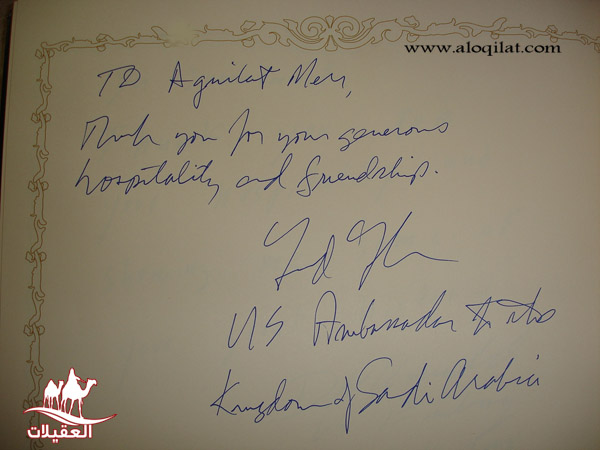 www.aloqilat.com
TO Aquilat Men,
Thank you for your generous
hospitality and friendship.
US Ambassador to the
Kingdom of Saudi Arabia
العقيلات